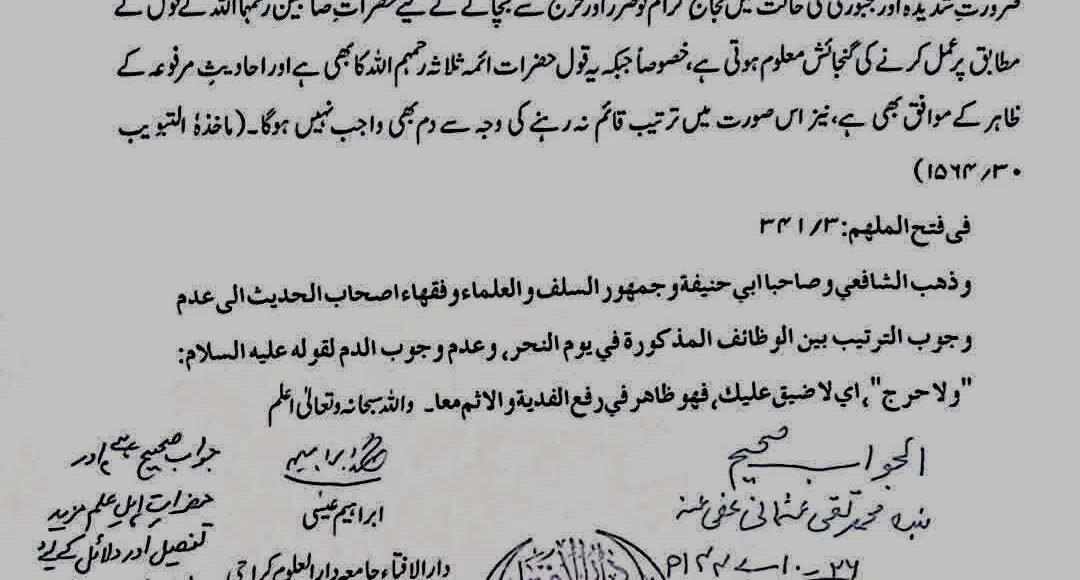 ضرورتِ شدیدہ اور مجبوری کی حالت میں حجاج کرام کو ضرر اور حرج سے بچانے کے لیے حضراتِ صاحبین رحمہما اللہ کے قول کے
مطابق پر عمل کرنے کی گنجائش معلوم ہوتی ہے، خصوصاً جبکہ یہ قول حضرات ائمہ ثلاثہ رحمہم اللہ کا بھی ہے اور احادیثِ مرفوعہ کے
ظاہر کے موافق بھی ہے، نیز اس صورت میں ترتیب قائم نہ رہنے کی وجہ سے دم بھی واجب نہیں ہوگا۔ (ماخذہٗ التبویب
۱۵۶۴/۳۰)
فی فتح الملهم: ۳/۳۴۱
وذهب الشافعي وصاحبا ابي حنيفة وجمهور السلف والعلماء وفقهاء اصحاب الحديث الى عدم
وجوب الترتيب بين الوظائف المذكورة في يوم النحر، وعدم وجوب الدم لقوله عليه السلام:
"ولا حرج"، اي لا ضيق عليك، فهو ظاهر في رفع الفدية والاثم معا۔ واللہ سبحانہ وتعالیٰ اعلم
الجواب صحیح
بندہ محمد تقی عثمانی عفی عنہ
۲۶-۱۰-
ابراہیم
ابراہیم عیسٰی
دار الافتاء جامعہ دار العلوم کراچی
جواب صحیح ہے اور
حضراتِ اہلِ علم مزید
تفصیل اور دلائل کے لیے